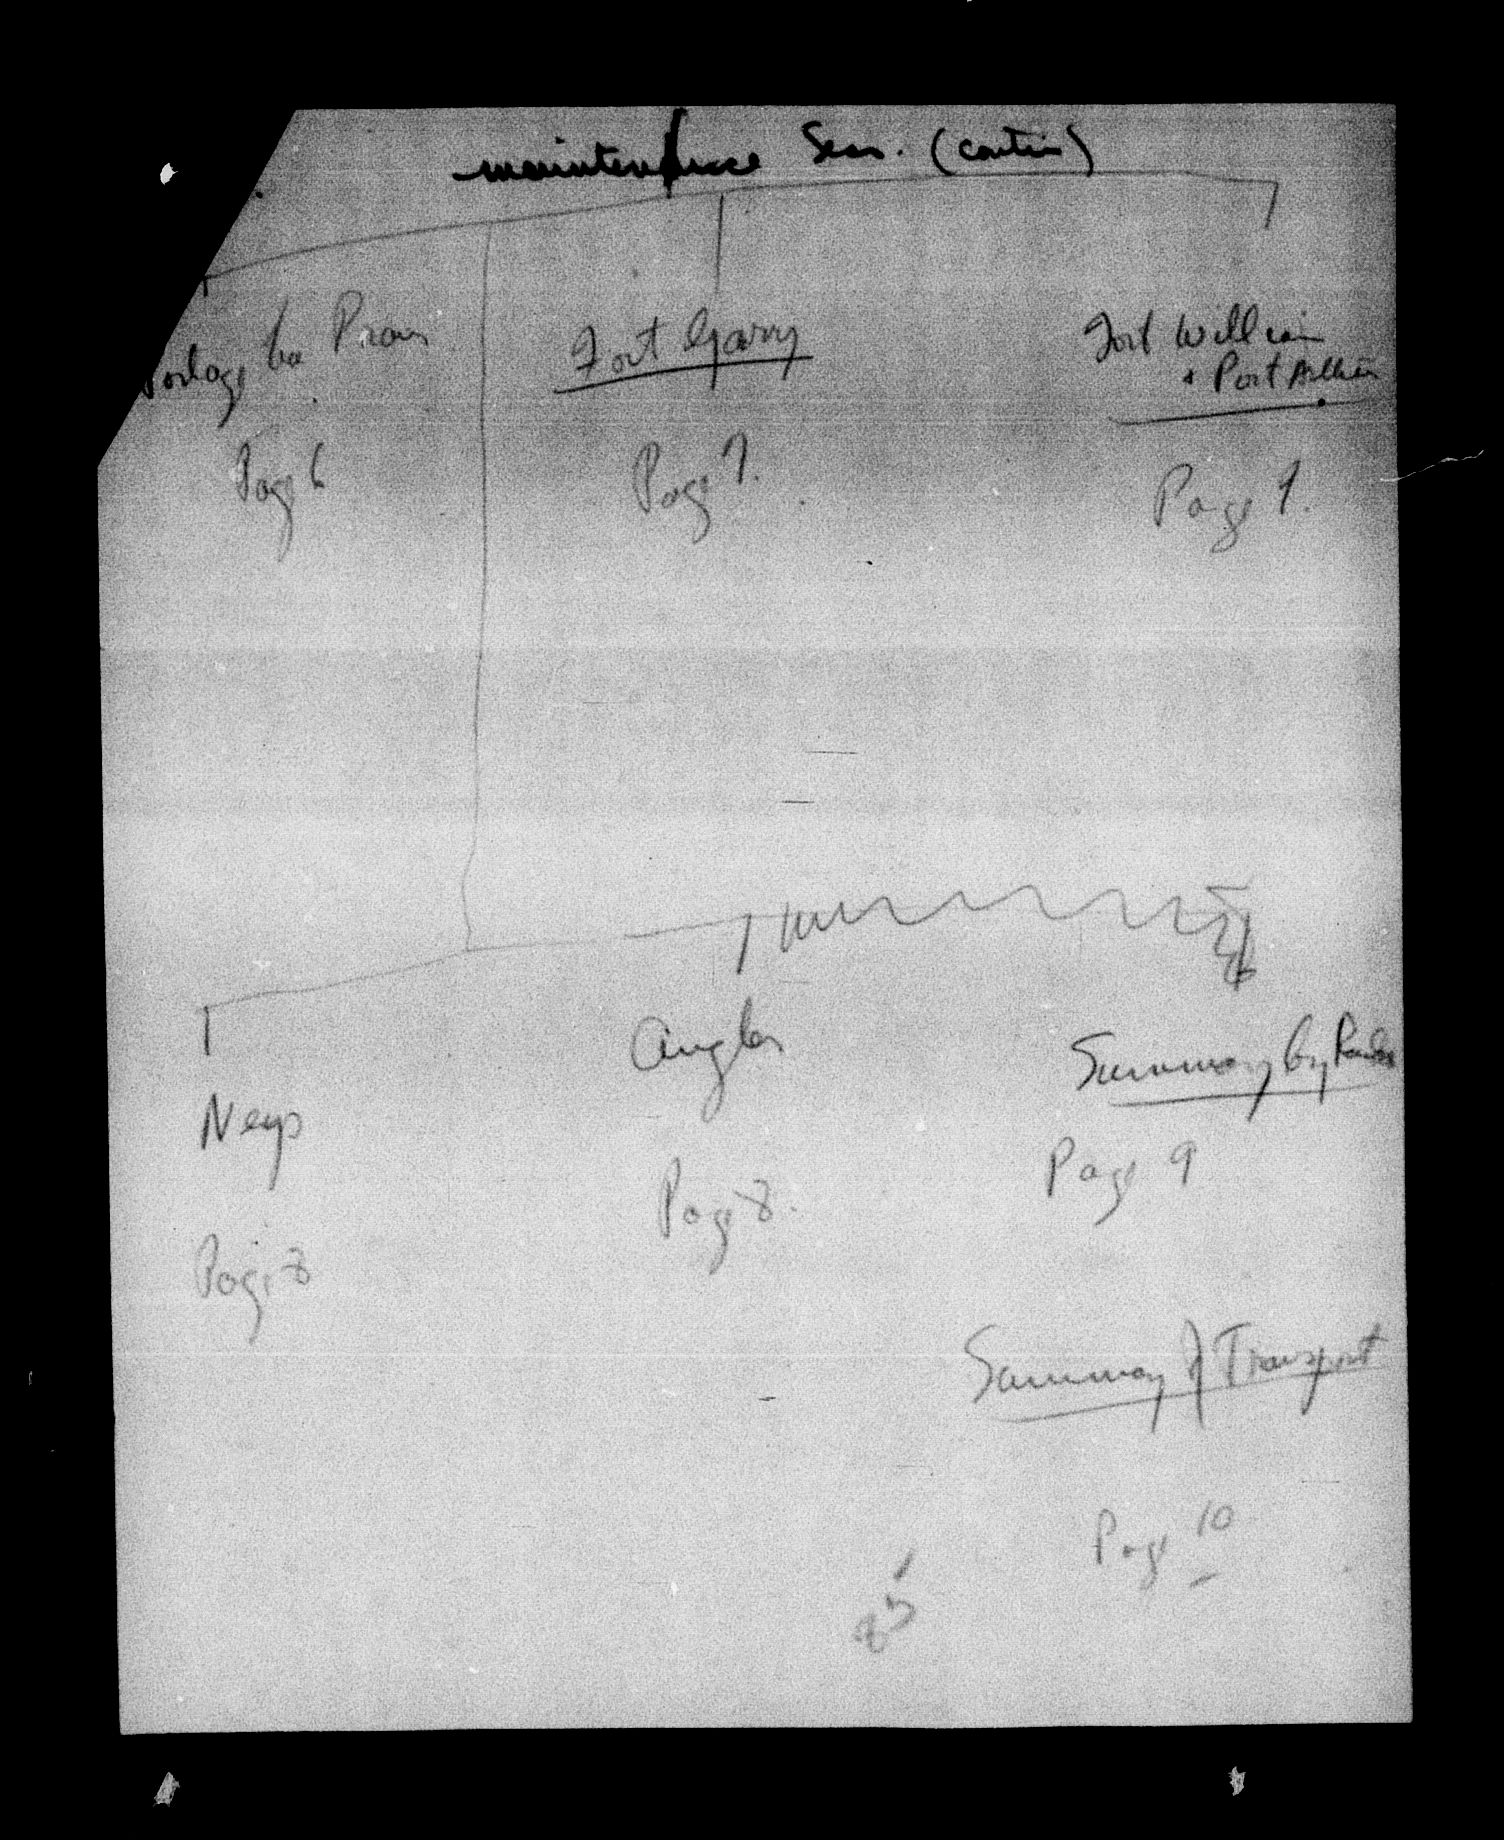 maintenance Sec. (contin)
Portage La Prair
Page 6
Fort Garry
Page 7.
Fort William
+ Port Arthur
Page 7.
Neys
Page 8
Angler
Page 8.
Summary by Ranks
Page 9
Summary of Transport
Page 10